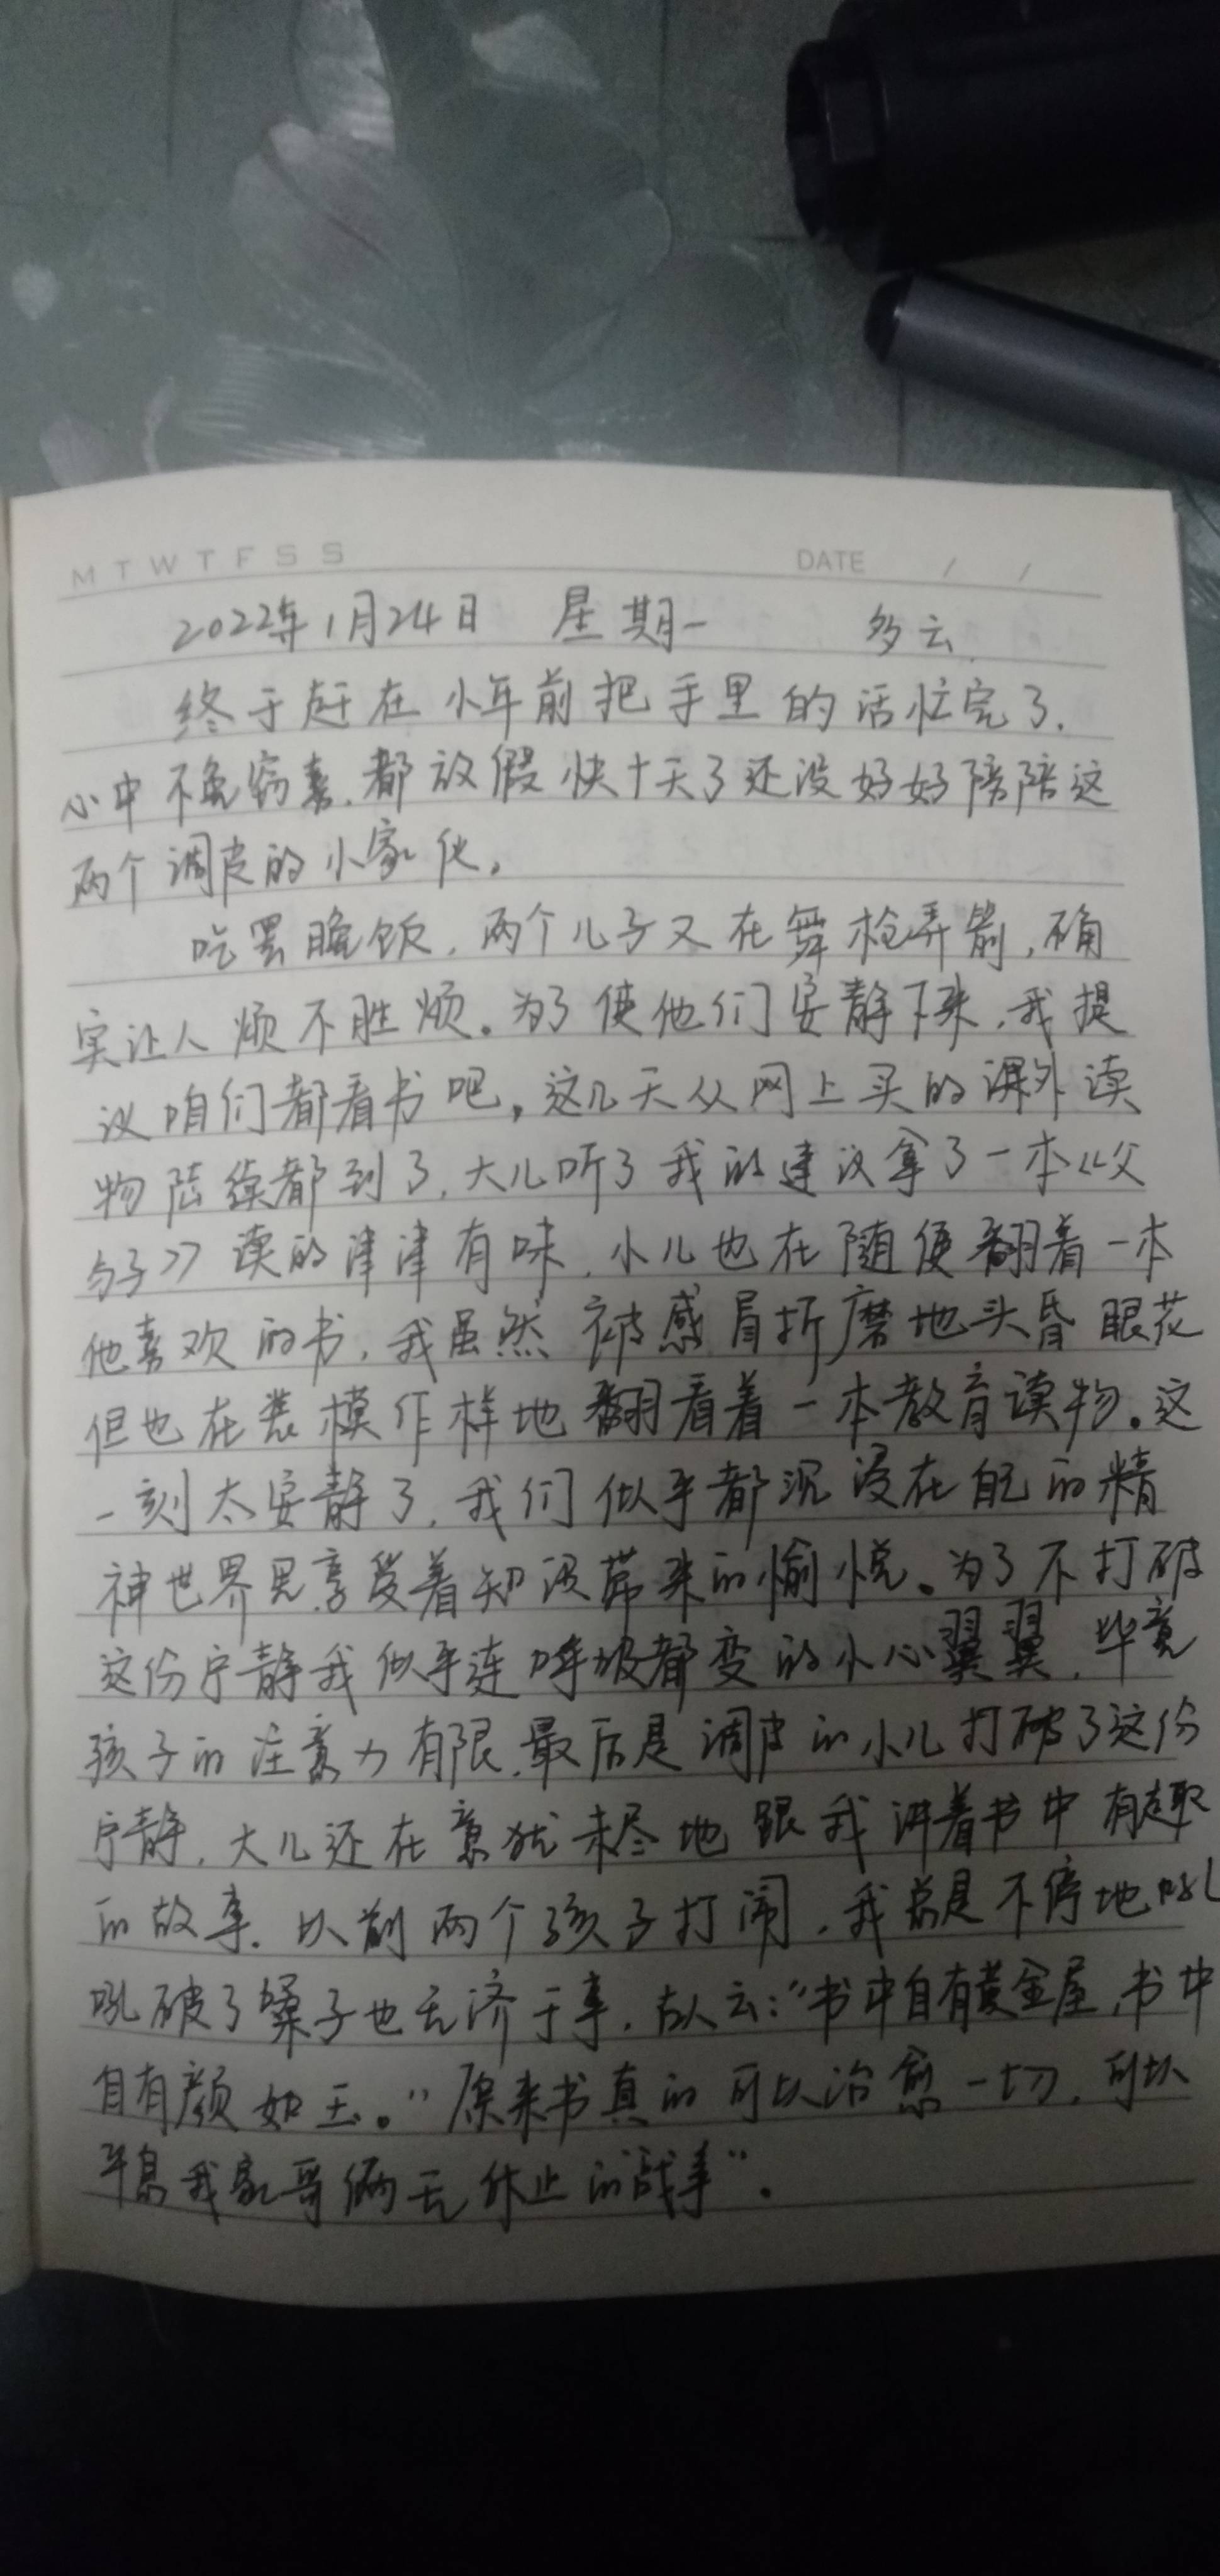 M T W T F S S DATE / /
2022年1月24日 星期一 多云.
终于赶在小年前把手里的活忙完了.
心中不免窃喜.都放假快十天了还没好好陪陪这
两个调皮的小家伙。
吃罢晚饭,两个儿子又在舞枪弄箭,确
实让人烦不胜烦。为了使他们安静下来,我提
议咱们都看书吧。这几天从网上买的课外读
物陆续都到了,大儿听了我的建议拿了一本《父
与子》读的津津有味,小儿也在随便翻着一本
他喜欢的书,我虽然被感冒折磨地头昏眼花
但也在装模作样地翻看着一本教育读物。这
一刻太安静了,我们似乎都沉浸在自己的精
神世界里,享受着知识带来的愉悦。为了不打破
这份宁静我似乎连呼吸都变的小心翼翼,毕竟
孩子的注意力有限,最后是调皮的小儿打破了这份
宁静,大儿还在意犹未尽地跟我讲着书中有趣
的故事.以前两个孩子打闹,我总是不停地吼
吼破了嗓子也无济于事,古人云:“书中自有黄金屋,书中
自有颜如玉。”原来书真的可以治愈一切,可以
平息我家哥俩无休止的“战事”。